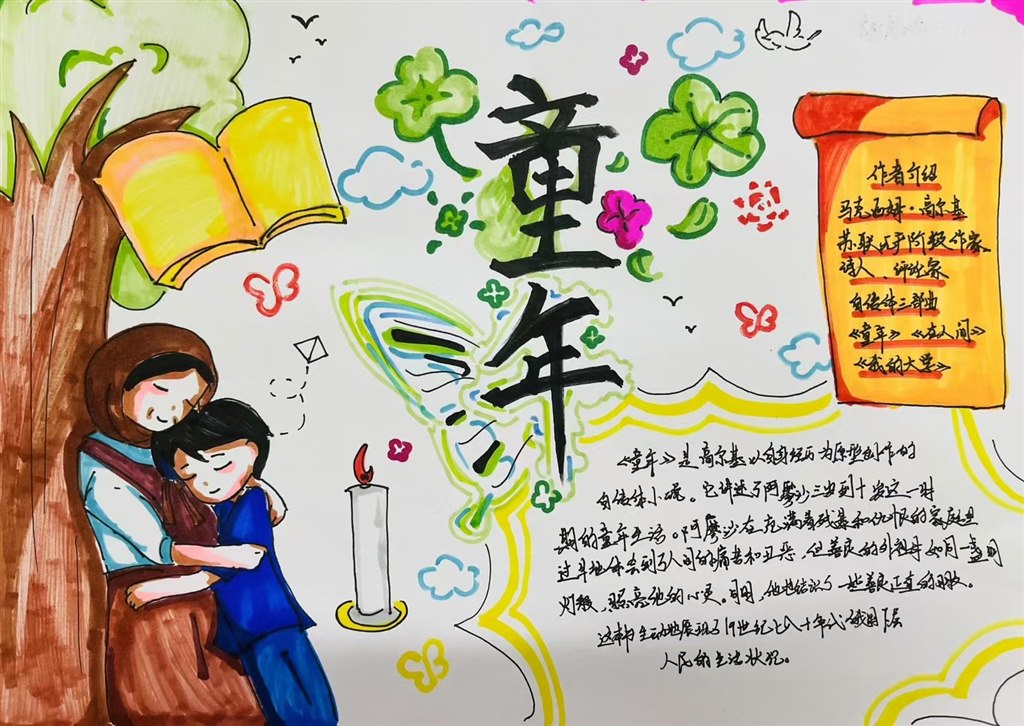 童年
作者介绍
马克西姆·高尔基
苏联无产阶级作家
诗人、评论家
自传体三部曲
《童年》《在人间》
《我的大学》
《童年》是高尔基以自身经历为原型创作的
自传体小说。它讲述了阿廖沙三岁到十岁这一时
期的童年生活。阿廖沙在充满着残暴和仇恨的家庭里
过早地体会到了人间的痛苦和丑恶,但善良的外祖母如同一盏明
灯般,照亮他的心灵。同时,他也结识了一些善良正直的朋友。
这本书生动地展现了19世纪七八十年代俄国下层
人民的生活状况。